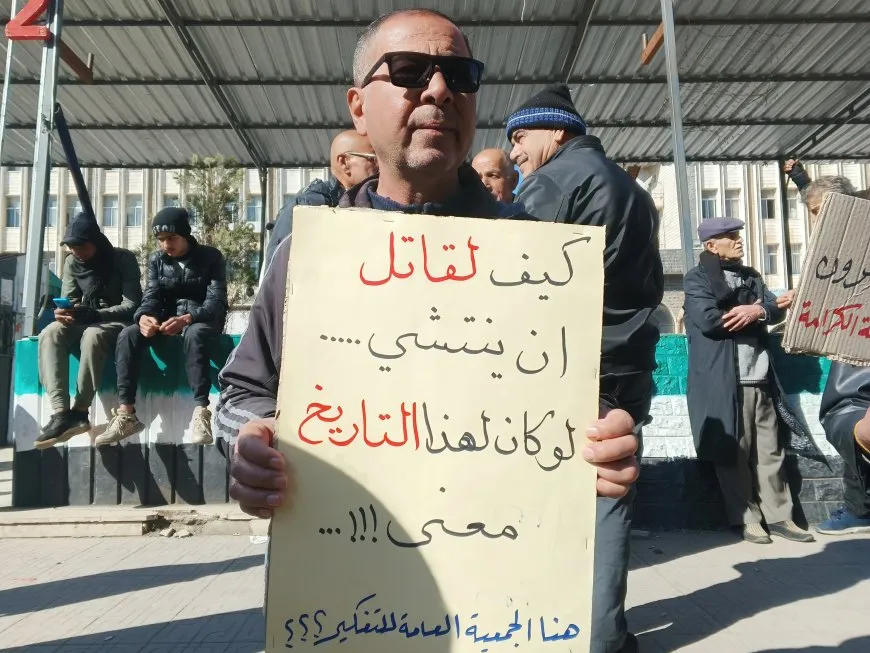 كيف لقاتل
ان ينتشي .....
لو كان لهذا التاريخ
معنى !!! ...
هنا الجمعية العامة للتفكير ؟؟؟
رون
ة الكرامة
2